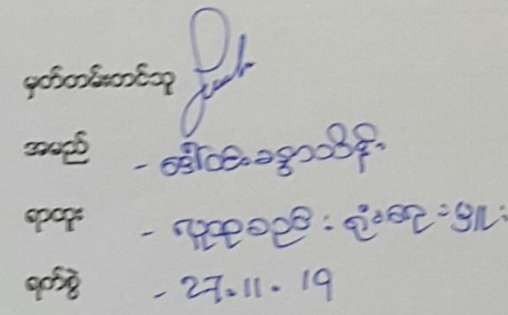 မှတ်တမ်းတင်သူ
အမည် - ဒေါ်ဝင်းခန္ဓာသိန်း
ရာထူး - လူထုစည်းရုံးရေးမှူး
ရက်စွဲ - 27.11.19